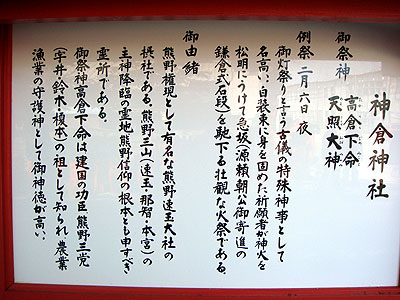 神倉神社
御祭神 高倉下命
天照大神
例祭 二月六日夜
御灯祭りと言う古儀の特殊神事として
名高い、白装束に身を固めた祈願者が神火を
松明にうけて急坂(源頼朝公御寄進の
鎌倉式石段)を馳下る壮観な火祭である。
御由緒
熊野権現として有名な熊野速玉大社の
摂社である。熊野三山(速玉・那智・本宮)の
主神降臨の霊地、熊野信仰の根本とも申すべき
霊所である。
御祭神高倉下命は建国の功臣、熊野三党
(宇井・鈴木・榎本)の祖として知られ、農業
漁業の守護神として御神徳が高い。